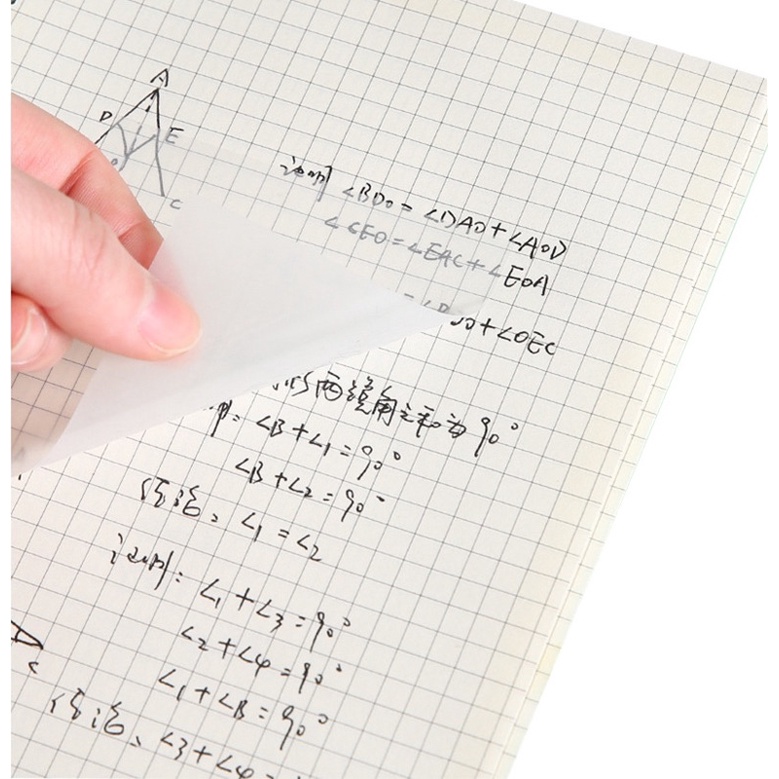 A
D
E
C
证明 ∠BDO=∠DAO+∠AOD
∠CEO=∠EAC+∠EOA
DO+∠OEC
两锐角之和为90°
∠B+∠1=90°
∠B+∠2=90°
结论:∠1=∠2
证明:∠1+∠3=90°
∠2+∠4=90°
∠1+∠B=90°
结论:∠3+∠4=
C